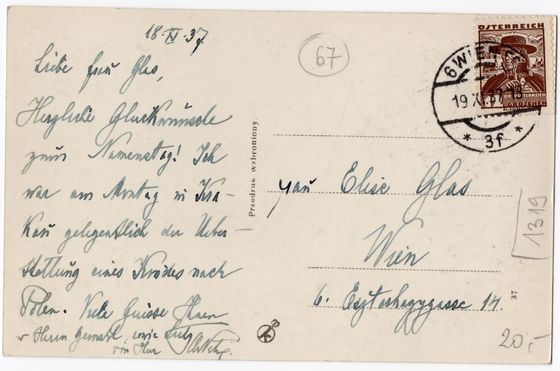 18 XI 37
67
ÖSTERREICH
6 WIEN
19.XI.37
* 3f *
GROSCHEN
Liebe Frau Glas,
Herzliche Glückwünsche
zum Namenstag! Ich
war am Montag in Kra-
kau gelegentlich der Ueber-
stellung eines Kindes nach
Polen. Viele Grüsse Ihnen
u Herrn Gemahl, sowie
Przedruk wzbroniony.
Frau Elise Glas
Wien
6. Eszterhazygasse 14.
1319
37
K
20,-